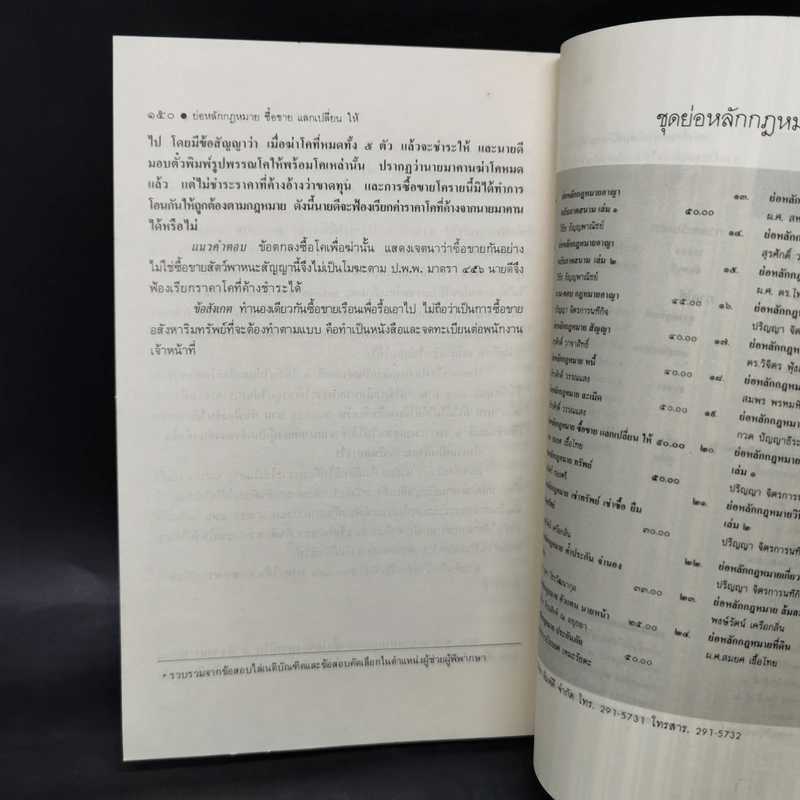 ๑๕๐ ● ย่อหลักกฎหมาย ซื้อขาย แลกเปลี่ยน ให้
ไป โดยมีข้อสัญญาว่า เมื่อฆ่าโคที่หมดทั้ง ๕ ตัว แล้วจะชำระให้ และนายดี
มอบตั๋วพิมพ์รูปพรรณโคให้พร้อมโคเหล่านั้น ปรากฏว่านายมาคานฆ่าโคหมด
แล้ว แต่ไม่ชำระราคาที่ค้างอ้างว่าขาดทุน และการซื้อขายโครายนี้มิได้ทำการ
โอนกันให้ถูกต้องตามกฎหมาย ดังนี้นายดีจะฟ้องเรียกค่าราคาโคที่ค้างจากนายมาคาน
ได้หรือไม่
แนวคำตอบ ข้อตกลงซื้อโคเพื่อฆ่านั้น แสดงเจตนาว่าซื้อขายกันอย่าง
ไม่ใช่ซื้อขายสัตว์พาหนะสัญญานี้จึงไม่เป็นโมฆะตาม ป.พ.พ. มาตรา ๔๕๖ นายดีจึง
ฟ้องเรียกราคาโคที่ค้างชำระได้
ข้อสังเกต ทำนองเดียวกันซื้อขายเรือนเพื่อรื้อเอาไป ไม่ถือว่าเป็นการซื้อขาย
อสังหาริมทรัพย์ที่จะต้องทำตามแบบ คือทำเป็นหนังสือและจดทะเบียนต่อพนักงาน
เจ้าหน้าที่
* รวบรวมจากข้อสอบไล่เนติบัณฑิตและข้อสอบคัดเลือกในตำแหน่งผู้ช่วยผู้พิพากษา
ชุดย่อหลักกฎหมา
ย่อหลักกฎหมายอาญา
ฉบับภาคสนาม เล่ม ๑ ๕๐.๐๐
วิชัย ธัญญพาณิชย์
ย่อหลักกฎหมายอาญา
ฉบับภาคสนาม เล่ม ๒
วิชัย ธัญญพาณิชย์
ถาม-ตอบ กฎหมายอาญา ๔๕.๐๐
ปริญญา จิตรการนทีกิจ
หลักกฎหมาย สัญญา ๔๐.๐๐
วาจาสิทธิ์
หลักกฎหมาย หนี้ ๔๐.๐๐
วรรณแสง
หลักกฎหมาย ละเมิด ๕๐.๐๐
วรรณแสง
หลักกฎหมาย ซื้อขาย แลกเปลี่ยน ให้ ๕๐.๐๐
เชื้อไทย
กฎหมาย ทรัพย์ ๕๐.๐๐
กฎหมาย เช่าทรัพย์ เช่าซื้อ ยืม
๓๐.๐๐
กฎหมาย ค้ำประกัน จำนอง
๓๓.๐๐
กฎหมาย ตัวแทน นายหน้า
ณ อยุธยา ๒๕.๐๐
กฎหมาย ประกันภัย
เหมะรัชตะ ๕๐.๐๐
๑๓. ย่อหลักก
ผ.ศ. สห
๑๔. ย่อหลักกฎ
สุรศักดิ์ ว
๑๕. ย่อหลักก
ผ.ศ. ดร.ไพ
๑๖. ย่อหลักกฎ
ปริญญา จิ
๑๗. ย่อหลักกฎ
ดร.วิจิตร ฟุ้ง
๑๘. ย่อหลักกฎหม
สมพร พรหมหิ
๑๙. ย่อหลักกฎหมา
กวด ปัญญาธีระ
๒๐. ย่อหลักกฎหมาย
เล่ม ๑
ปริญญา จิตรการน
๒๑. ย่อหลักกฎหมายวิ
เล่ม ๒
ปริญญา จิตรการนที
๒๒. ย่อหลักกฎหมายเกี่ยว
ปริญญา จิตรการนทีกิ
๒๓. ย่อหลักกฎหมาย ล้มละ
พงษ์รัตน์ เครือกลิ่น
๒๔. ย่อหลักกฎหมายที่ดิน
ผ.ศ.สมยศ เชื้อไทย
จำกัด โทร. 291-5731 โทรสาร. 291-5732